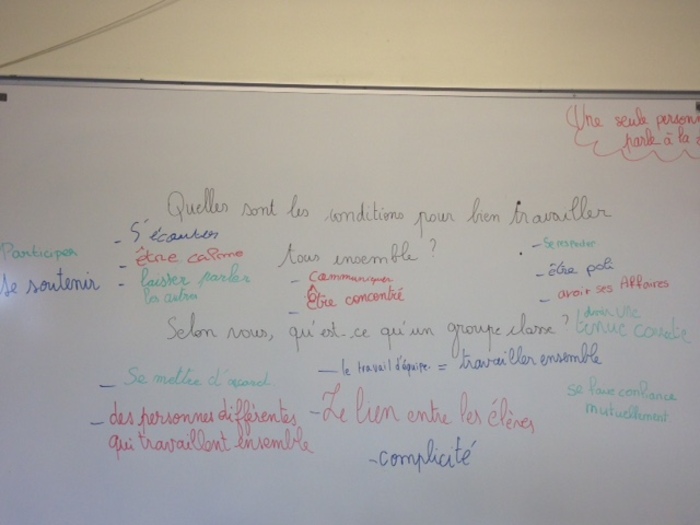 Une seule person
parle à la
Quelles sont les conditions pour bien travailler
tous ensemble ?
Participer
se soutenir
- S'écouter
- être calme
- laisser parler
les autres
- Communiquer
- Être concentré
- Se respecter
- être poli
- avoir ses Affaires
avoir une
tenue correcte
Selon vous, qu'est-ce qu'un groupe classe ?
- le travail d'équipe = travailler ensemble
- Se mettre d'accord
se faire confiance
mutuellement
- des personnes différentes
qui travaillent ensemble
- Le lien entre les élèves
- complicité